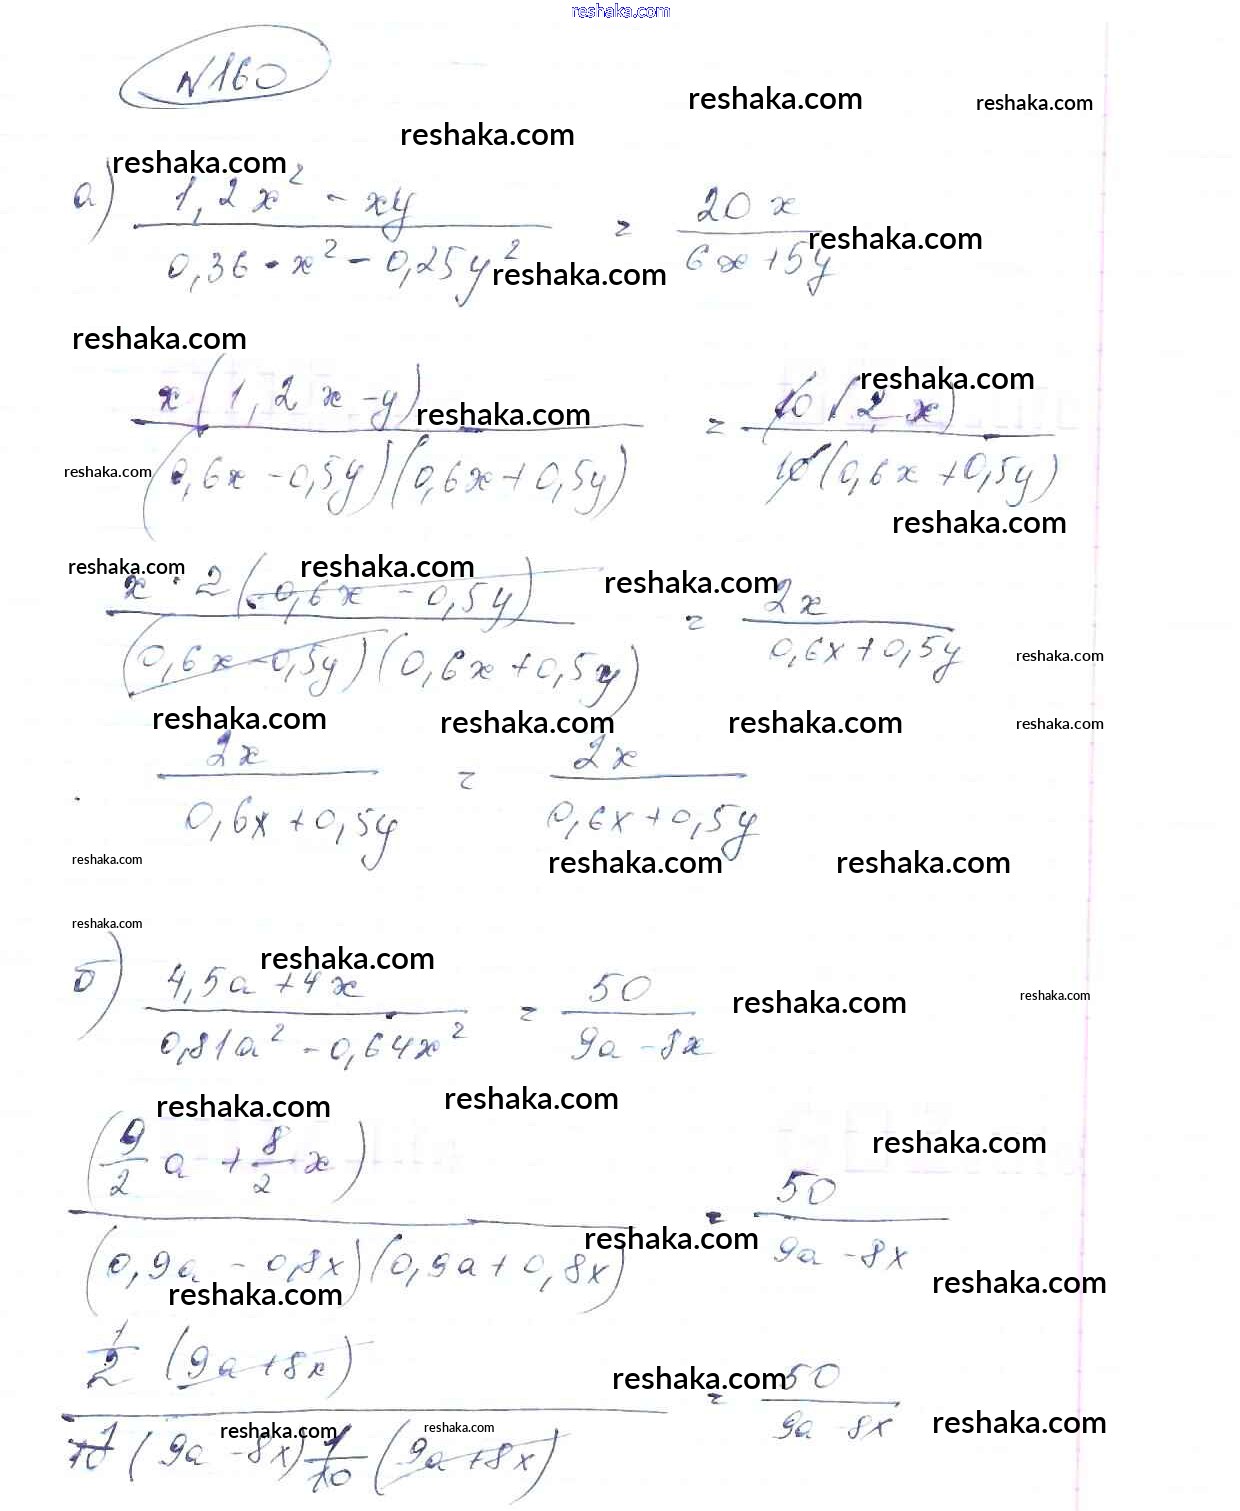 reshaka.com
N160
reshaka.com reshaka.com
reshaka.com
reshaka.com
а) (1,2x² - xy)/(0,36·x² - 0,25y²) = 20x/(6x+5y)
reshaka.com
reshaka.com
reshaka.com
reshaka.com
reshaka.com
x(1,2x - y)/((0,6x - 0,5y)(0,6x + 0,5y)) = 10(2x)/(10(0,6x + 0,5y))
reshaka.com
reshaka.com
reshaka.com reshaka.com reshaka.com
x·2(0,6x - 0,5y)/((0,6x - 0,5y)(0,6x + 0,5y)) = 2x/(0,6x + 0,5y)
reshaka.com
reshaka.com reshaka.com reshaka.com reshaka.com
2x/(0,6x + 0,5y) = 2x/(0,6x + 0,5y)
reshaka.com reshaka.com reshaka.com
reshaka.com
reshaka.com
б) (4,5a + 4x)/(0,81a² - 0,64x²) = 50/(9a - 8x)
reshaka.com reshaka.com
reshaka.com reshaka.com
reshaka.com
(9/2 a + 8/2 x)/((0,9a - 0,8x)(0,9a + 0,8x)) = 50/(9a - 8x)
reshaka.com
reshaka.com reshaka.com
1/2 (9a + 8x)/(1/10 (9a - 8x) 1/10 (9a + 8x)) = 50/(9a - 8x)
reshaka.com
reshaka.com reshaka.com reshaka.com